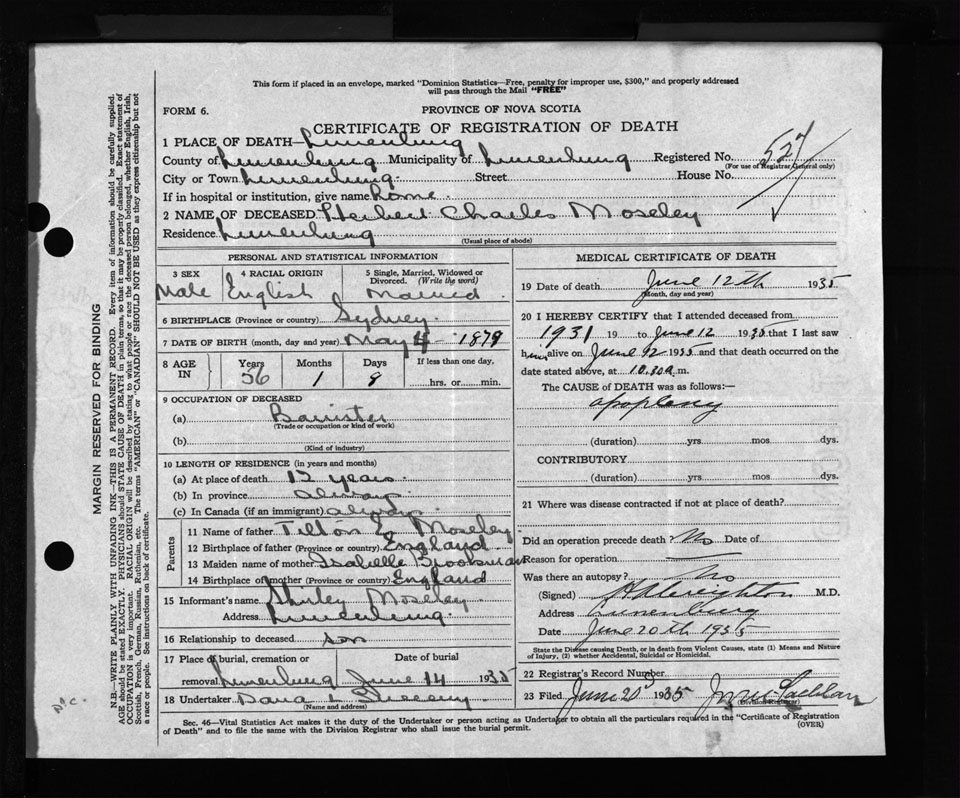 This form if placed in an envelope, marked "Dominion Statistics—Free, penalty for improper use, $300," and properly addressed
will pass through the Mail "FREE"
FORM 6.
PROVINCE OF NOVA SCOTIA
CERTIFICATE OF REGISTRATION OF DEATH
1 PLACE OF DEATH—Lunenburg
County of Lunenburg Municipality of Lunenburg Registered No. 527
(For use of Registrar General only)
City or Town Lunenburg Street House No.
If in hospital or institution, give name home
2 NAME OF DECEASED Herbert Charles Moseley
Residence Lunenburg
(Usual place of abode)
PERSONAL AND STATISTICAL INFORMATION
3 SEX 4 RACIAL ORIGIN 5 Single, Married, Widowed or Divorced. (Write the word)
Male English Married
6 BIRTHPLACE (Province or country) Sydney
7 DATE OF BIRTH (month, day and year) May 4 1879
8 AGE IN Years Months Days If less than one day,
56 1 8 hrs. or min.
9 OCCUPATION OF DECEASED
(a) Barrister
(Trade or occupation or kind of work)
(b)
(Kind of industry)
10 LENGTH OF RESIDENCE (in years and months)
(a) At place of death 12 years
(b) In province always
(c) In Canada (if an immigrant) always
Parents
11 Name of father Tilton E Moseley
12 Birthplace of father (Province or country) England
13 Maiden name of mother Isabelle Brookman
14 Birthplace of mother (Province or country) England
15 Informant's name Shirley Moseley
Address Lunenburg
16 Relationship to deceased son
17 Place of burial, cremation or removal Lunenburg Date of burial June 14 1935
18 Undertaker Dana L Sweeny
(Name and address)
MEDICAL CERTIFICATE OF DEATH
19 Date of death June 12th 1935
(Month, day and year)
20 I HEREBY CERTIFY that I attended deceased from
1931 19 to June 12 1935 that I last saw
him alive on June 12 1935 and that death occurred on the
date stated above, at 10.30 a.m.
The CAUSE of DEATH was as follows:—
apoplexy
(duration) yrs mos dys.
CONTRIBUTORY
(duration) yrs mos dys.
21 Where was disease contracted if not at place of death?
Did an operation precede death? No Date of
Reason for operation
Was there an autopsy? No
(Signed) Creighton M.D.
Address Lunenburg
Date June 20th 1935
State the Disease causing Death, or in death from Violent Causes, state (1) Means and Nature
of Injury, (2) whether Accidental, Suicidal or Homicidal.
22 Registrar's Record Number
23 Filed June 20 1935
(Division Registrar)
Sec. 46—Vital Statistics Act makes it the duty of the Undertaker or person acting as Undertaker to obtain all the particulars required in the "Certificate of Registration
of Death" and to file the same with the Division Registrar who shall issue the burial permit.
(OVER)
MARGIN RESERVED FOR BINDING
N.B.—WRITE PLAINLY WITH UNFADING INK—THIS IS A PERMANENT RECORD. Every item of information should be carefully supplied.
AGE should be stated EXACTLY. PHYSICIANS should STATE CAUSE OF DEATH in plain terms, so that it may be properly classified. Exact statement of
OCCUPATION is very important. RACIAL ORIGIN will be described by stating to what people or race the deceased person belonged, whether English, Irish,
Scottish, French, German, Russian, Ruthenian, etc. The terms "AMERICAN" or "CANADIAN" SHOULD NOT BE USED as they express citizenship but not
a race or people. See instructions on back of certificate.